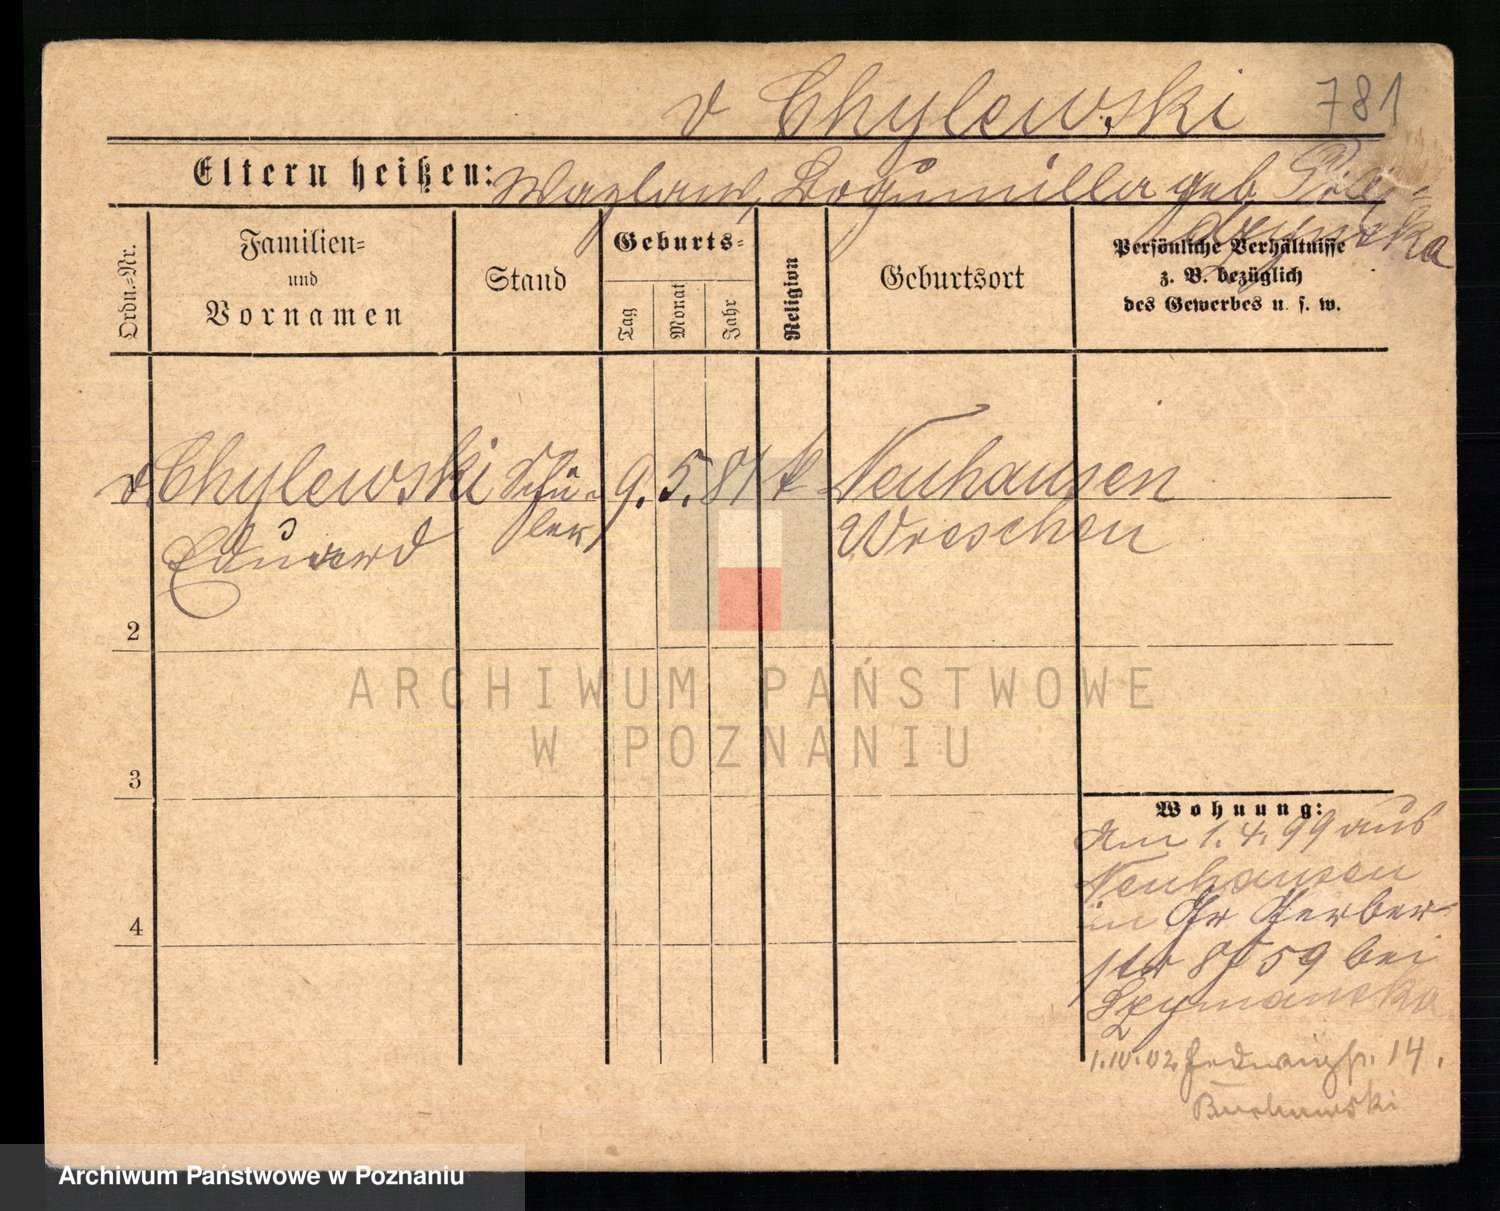 v Chylewski 781
Eltern heißen: Wazlaw, Bogumilla geb
Ordn.-Nr.
Familien-
und
Vornamen
Stand
Geburts-
Tag
Monat
Jahr
Religion
Geburtsort
Persönliche Verhältnisse
z. B. bezüglich
des Gewerbes u. s. w.
v. Chylewski Schü- 9. 5. 81 k Neuhausen
Eduard ler Wreschen
2
3
4
Wohnung:
Am 1.4.99 aus
Neuhausen
in Gr Gerber-
str 59 bei
Szymanska
1.IV.02. Hedwigstr. 14.
ARCHIWUM PAŃSTWOWE
W POZNANIU
Archiwum Państwowe w Poznaniu